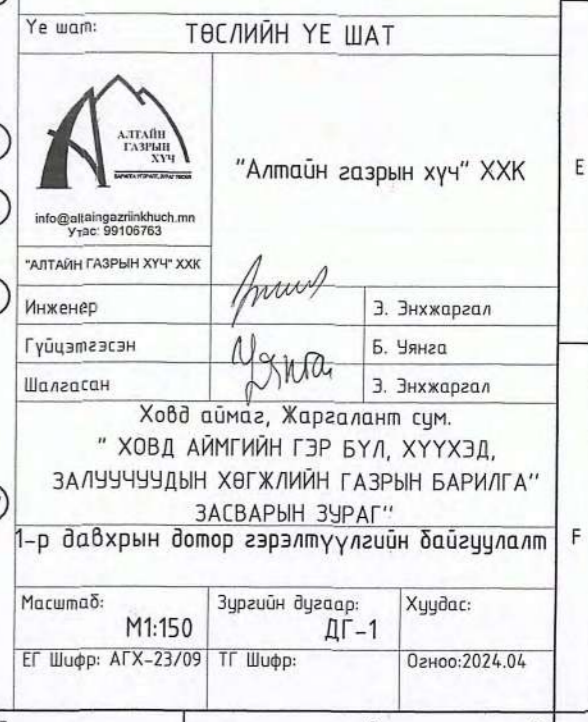 Үе шат: ТӨСЛИЙН ҮЕ ШАТ
АЛТАЙН
ГАЗРЫН
ХҮЧ
info@altaingazriinkhuch.mn
Утас: 99106763
"Алтайн газрын хүч" ХХК
E
"АЛТАЙН ГАЗРЫН ХҮЧ" ХХК
Инженер Э. Энхжаргал
Гүйцэтгэсэн Уянга Б. Уянга
Шалгасан Э. Энхжаргал
Ховд аймаг, Жаргалант сум.
" ХОВД АЙМГИЙН ГЭР БҮЛ, ХҮҮХЭД,
ЗАЛУУЧУУДЫН ХӨГЖЛИЙН ГАЗРЫН БАРИЛГА"
ЗАСВАРЫН ЗУРАГ"
1-р давхрын дотор гэрэлтүүлгийн байгуулалт
F
Масштаб: Зургийн дугаар: Хуудас:
М1:150 ДГ-1
ЕГ Шифр: АГХ-23/09 ТГ Шифр: Огноо:2024.04